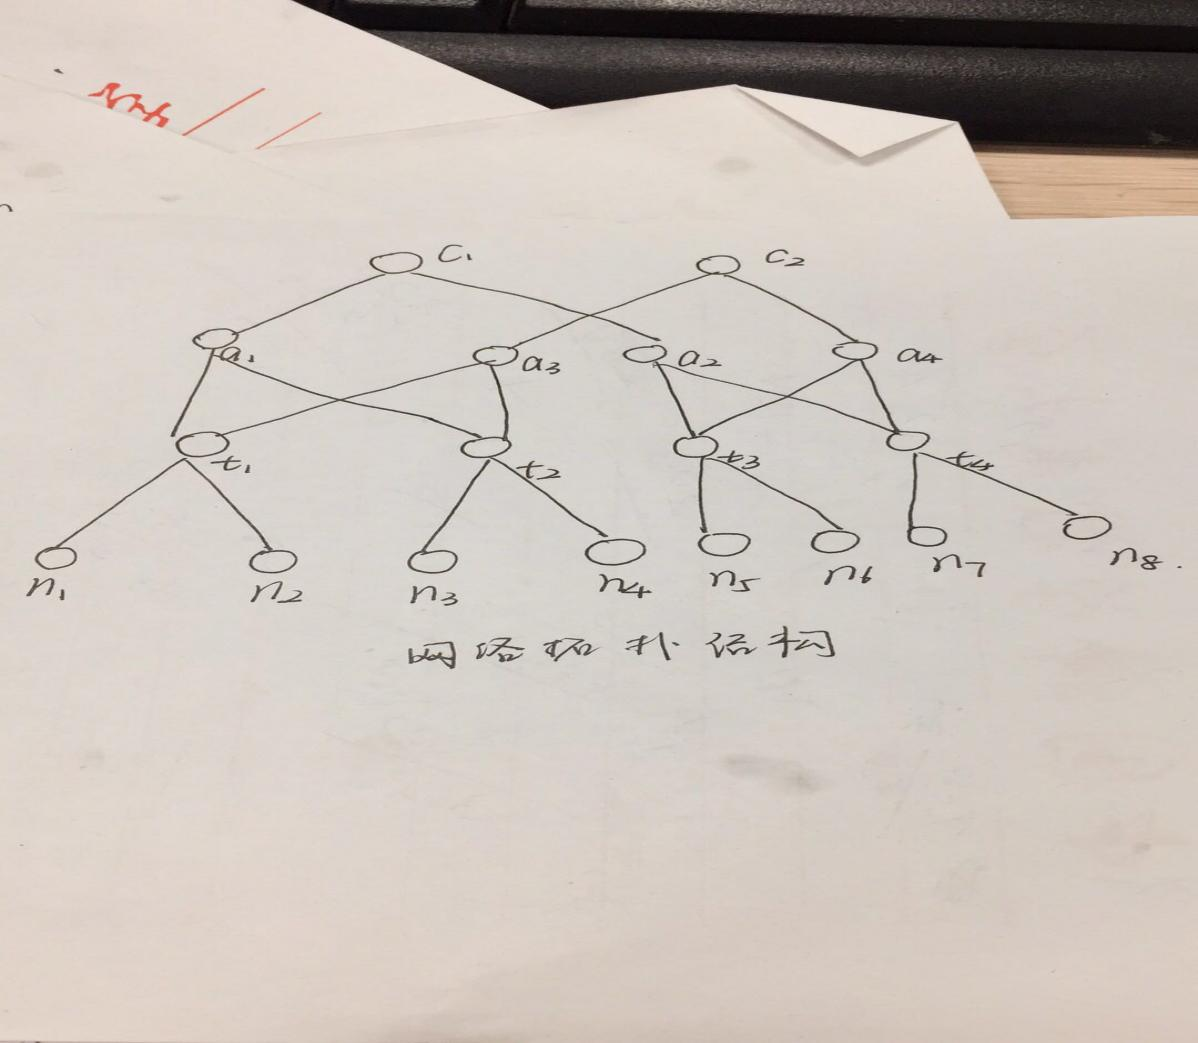 c₁ c₂
a₁ a₃ a₂ a₄
t₁ t₂ t₃ t₄
n₁ n₂ n₃ n₄ n₅ n₆ n₇ n₈.
网络拓扑结构